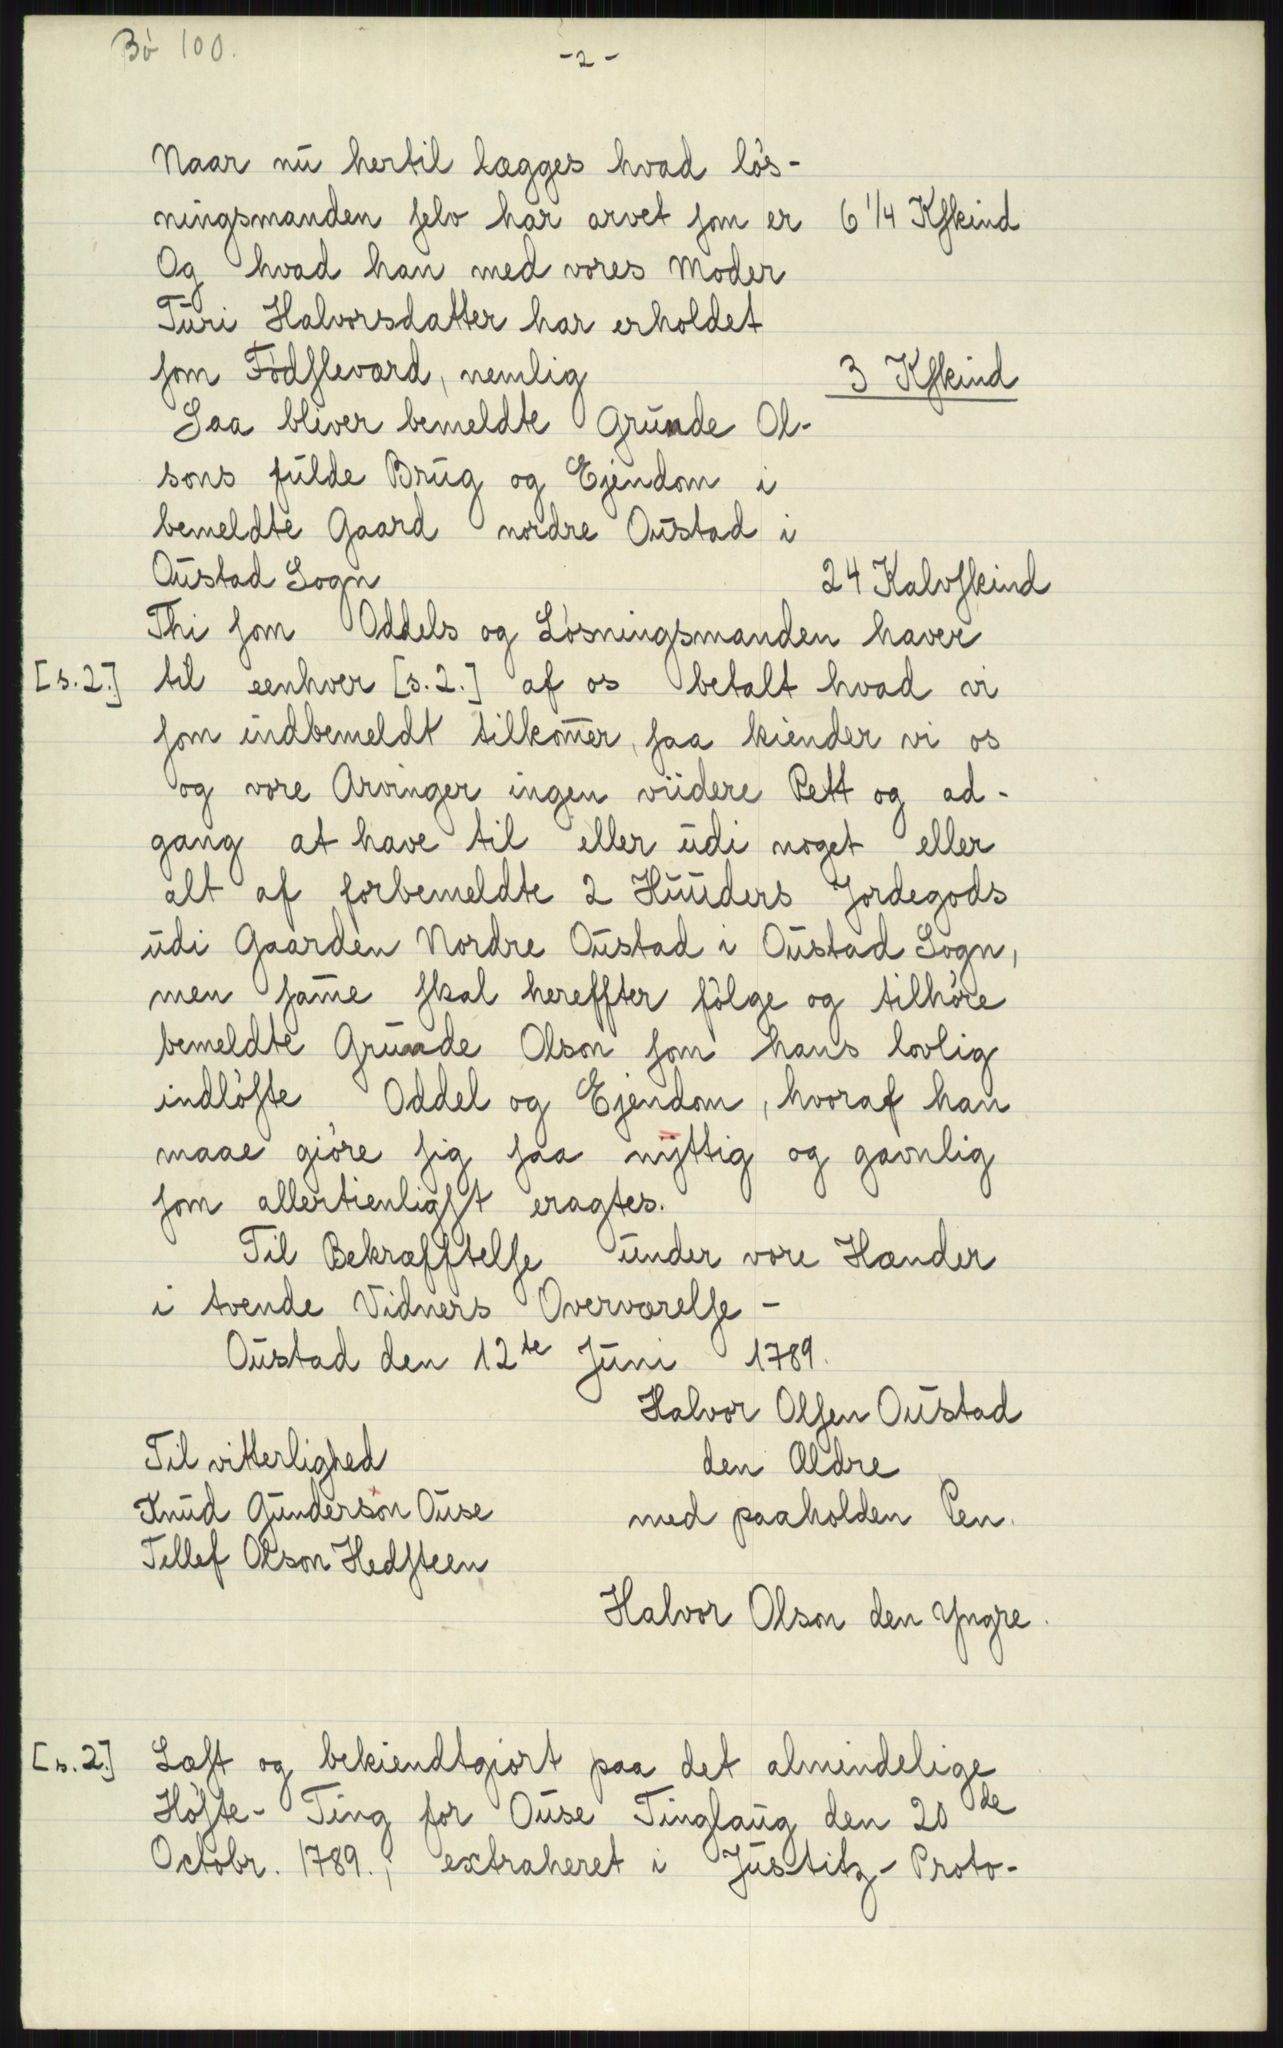 Bø 100.
-2-
Naar nu hertil lægges hvad løs-
ningsmanden selv har arvet som er 6 1/4 Kskind
Og hvad han med vores Moder
Turi Halvorsdatter har erholdet
som Fødslevard, nemlig 3 Kskind
Saa bliver bemeldte Grunde Ol-
sons fulde Brug og Ejendom i
bemeldte Gaard nordre Oustad i
Oustad Sogn 24 Kalvskind
Thi som Oddels og Løsningsmanden haver
[s.2.] til eenhver [s.2.] af os betalt hvad vi
som indbemeldt tilkom̅er, saa kiender vi os
og vore Arvinger ingen viidere Rett og ad-
gang at have til eller udi noget eller
alt af forbemeldte 2 Huuders Jordegods
udi Gaarden Nordre Oustad i Oustad Sogn,
men sam̅e skal hereffter følge og tilhøre
bemeldte Grunde Olson som hans lovlig
indløste Oddel og Ejendom, hvoraf han
maae giøre sig saa nÿttig og gavnlig
som allertienligst eragtes.
Til Bekræfftelse under vore Hænder
i tvende Vidners Overværelse -
Oustad den 12te Juni 1789.
Halvor Olsen Oustad
Til vitterlighed den Ældre
Knud Gunderson Ouse med paaholden Pen.
Tellef Olson Hedsteen
Halvor Olson den Yngre.
[s.2.] Læst og bekiendtgiort paa det almindelige
Høste-Ting for Ouse Tinglaug den 20de
Octobr. 1789., extraheret i Justitz-Proto-